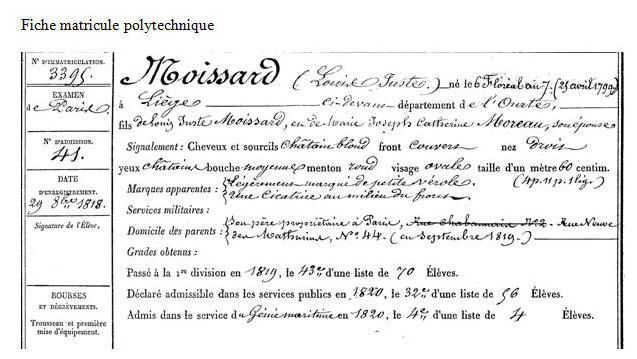 Fiche matricule polytechnique
N° D'IMMATRICULATION.
3395.
EXAMEN
de Paris
N° D'ADMISSION.
41.
DATE
D'ENREGISTREMENT.
29 8bre 1818.
Signature de l'Élève,
BOURSES
ET DÉGRÈVEMENTS.
Trousseau et première
mise d'équipement.
Moissard (Louis Juste.) né le 6 Floréal an 7. (25 avril 1799)
à Liège ci-devant département de l'Ourte,
fils de Louis Juste Moissard, et de Marie Joseph Catherine Moreau, son épouse
Signalement: Cheveux et sourcils Châtain blond front Couvert nez Droit
yeux châtains bouche moyenne menton rond visage ovale taille d'un mètre 60 centim.
Marques apparentes: légèrement marqué de petite vérole. (4 p. 11 p. 1 lig.)
Une Cicatrice au milieu du front.
Services militaires:
Domicile des parents: Son père propriétaire à Paris, Rue Chabannais N° 2. Rue Neuve
des Mathurins, N° 44. (en Septembre 1819.)
Grades obtenus:
Passé à la 1re division en 1819, le 43e d'une liste de 70 Élèves.
Déclaré admissible dans les services publics en 1820, le 32e d'une liste de 56 Élèves.
Admis dans le service du Génie maritime en 1820, le 4e d'une liste de 4 Élèves.